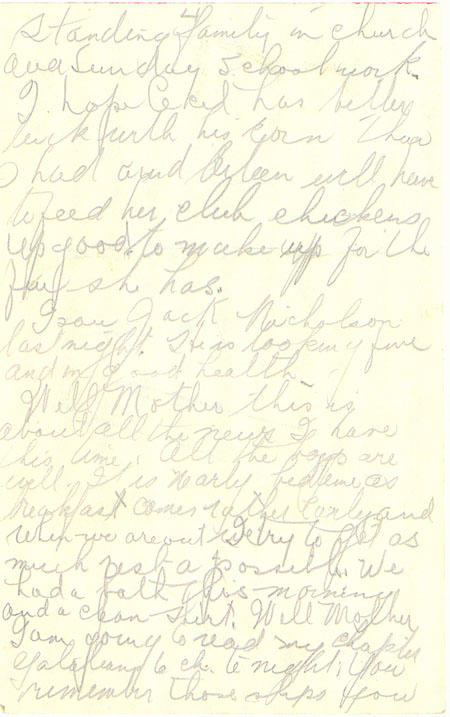 Standing family in church
and Sunday School work.
I hope Cecil has better
luck with his corn than
I had and Aileen will have
to feed her club chickens
up good to make up for the
few she has.
I saw Jack Nicholson
last night. He is looking fine
and in good health
Well Mother this is
about all the news I have
this time. All the boys are
well. It is nearly bedtime as
breakfast comes rather early and
when we are out we try to get as
much rest a possible. We
had a bath this morning
and a clean shirt. Well Mother
I am going to read my chapter
Galatians 6 ch. to night; You
remember those strips you